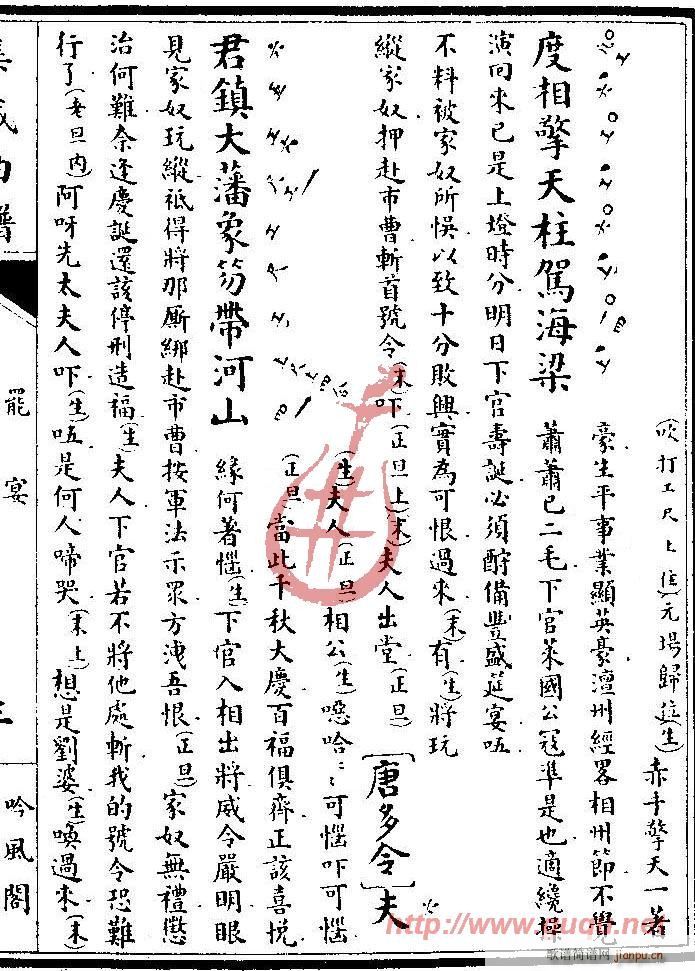 度相擎天柱駕海梁
(吹打工尺上住)元場歸位(生)赤手擎天一著
豪生平事業顯英豪澶州經畧相州節不覺
蕭蕭已二毛下官萊國公寇準是也適纔操
演回來已是上燈時分明日下官壽誕必須酧備豐盛筵宴呍
不料被家奴所悞以致十分敗興實為可恨過來(末)有(生)將玩
縱家奴押赴市曹斬首號令(末)吓(正旦上)(末)夫人出堂(正旦)[唐多令]夫
君鎮大藩象笏帶河山
(生)夫人(正旦)相公(生)噁哈ミ可惱吓可惱
(正旦)當此千秋大慶百福俱齊正該喜悅
緣何著惱(生)下官入相出將威令嚴明眼
見家奴玩縱祗得將那厮綁赴市曹按軍法示眾方洩吾恨(正旦)家奴無禮懲
治何難奈逢慶誕還該停刑造福(生)夫人下官若不將他處斬我的號令恐難
行了(老旦內)阿呀先太夫人吓(生)呍是何人啼哭(末上)想是劉婆(生)喚過來(末)
集成曲譜
罷宴
三
吟風閣
http://www.ququn.net/
歌谱简谱网
jianpu.cn